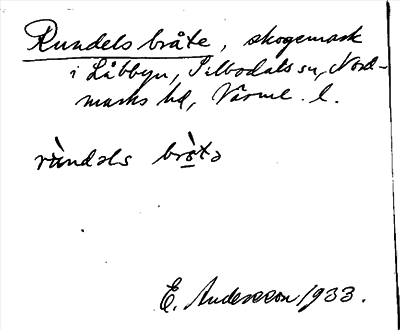 Rundels bråte, skogsmark
i Låbbyn, Silbodals sn, Nord-
marks hd, Värml. l.
rùndəls brå̀tə
E. Andersson 1933.